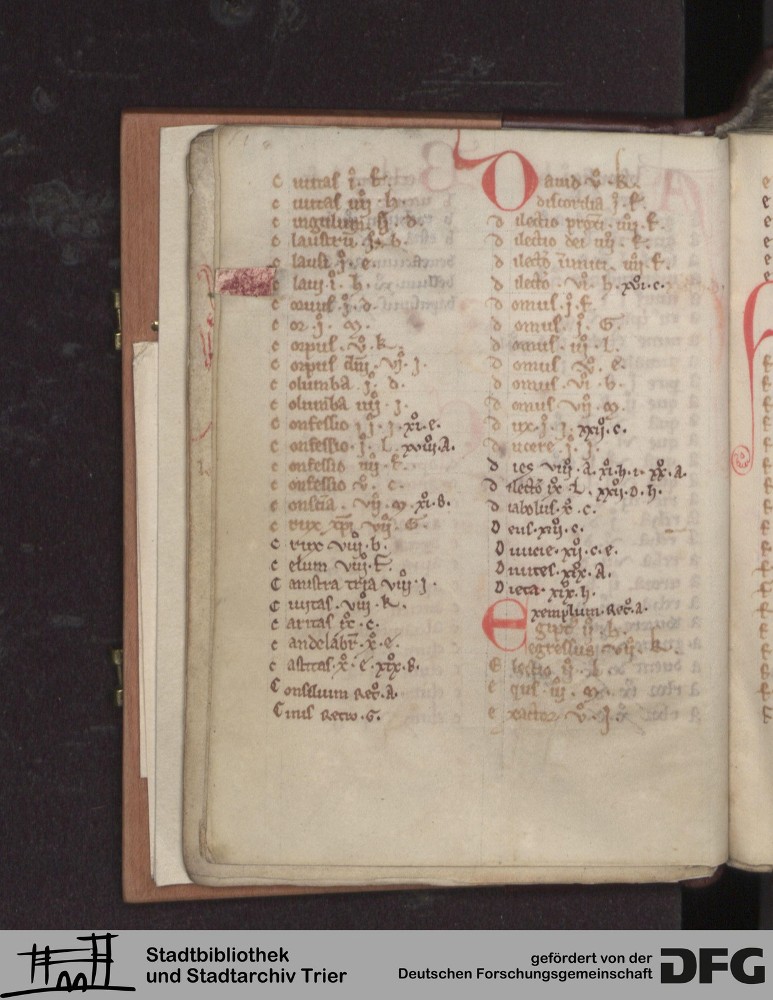 c iuitas i. k.
c iuitas iiij. h.
c ingulum iij. d.
c laustrū i. b.
c laust i. e.
c lauis. i. h.
c or. i. m.
c orpus. v. k.
c orpus dñi. vi. i.
c olumba i. d.
c olumba iiij. i.
c onfessio i. i. i. xi. e.
c onfessio. i. l. xviij. A.
c onfessio iiij. f.
c onfessio v. c.
c onsciā. vij. m. xi. B.
c rux xp̄i vij. G.
c rux viij. b.
c elum viij. f.
C anistra tria viij. i.
C iuitas. viij. k.
c aritas ix. c.
c andelabr̄. x. e.
c astitas. x. e. xix. B.
C onsilium Rec. A.
C inis Recto. G.
D auid v. k.
discordia i. f.
d ilectio proxi iiij. f.
d ilectio dei iiij. k.
d ilectō inimici iiij. f.
d ilectō. vi. h. xvi. c.
d omus. i. f.
d omus. i. G.
d omus. iij. l.
d omus. v. e.
d omus. vi. b.
d omus vij. m.
d ux. i. i. xxij. c.
d ucere. i. i.
d ies viij. A. xi. h. i. xx. A.
d ilectō ix. L. xxij. D. h.
d iabolus. x. c.
D eus. xiij. c.
D iuicie. xij. c. e.
D iuites. xix. A.
D ieta. xix. h.
E xemplum. Rec. A.
gipt ij. h.
egressus vij. k.
E lectio ij. l.
e qus. iij. m.
e xactor v. i.
Stadtbibliothek
und Stadtarchiv Trier
gefördert von der
Deutschen Forschungsgemeinschaft
DFG